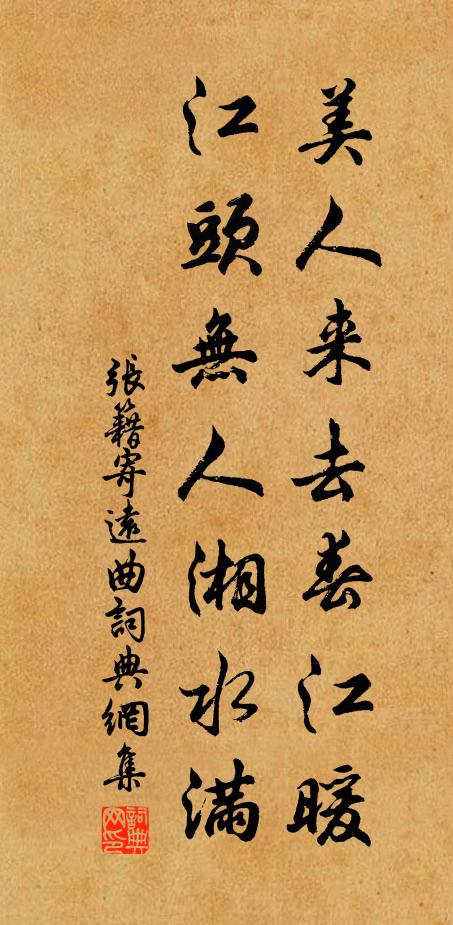 美人来去春江暖
江頭無人湘水滿
張籍寄遠曲詞典網集
詞典網印